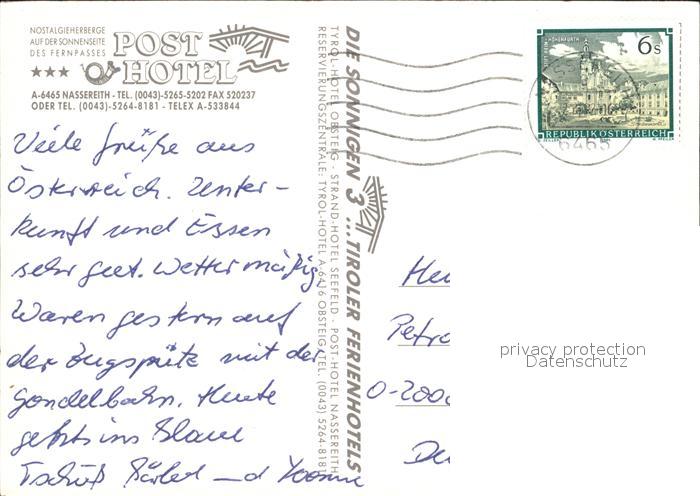 NOSTALGIEHERBERGE
AUF DER SONNENSEITE
DES FERNPASSES
POST
HOTEL
A-6465 NASSEREITH - TEL. (0043)-5265-5202 FAX 520237
ODER TEL. (0043)-5264-8181 - TELEX A-533844
Viele Grüße aus
Österreich. Unter-
kunft und Essen
sehr gut. Wetter mäßig
Waren gestern auf
der Zugspitze mit der
Gondelbahn. Heute
geht's ins Blaue
Tschüß Bärbel und Yvonne
DIE SONNIGEN 3 ... TIROLER FERIENHOTELS
TYROL-HOTEL OBSTEIG - STRAND-HOTEL SEEFELD - POST-HOTEL NASSEREITH
RESERVIERUNGSZENTRALE: TYROL-HOTEL A-6416 OBSTEIG TEL. (0043) 5264-8181
6 S
REPUBLIK ÖSTERREICH
6465
Petra
O-200
privacy protection
Datenschutz